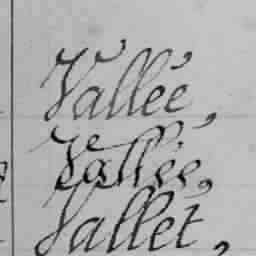 Vallée,
Vallée,
Vallet,